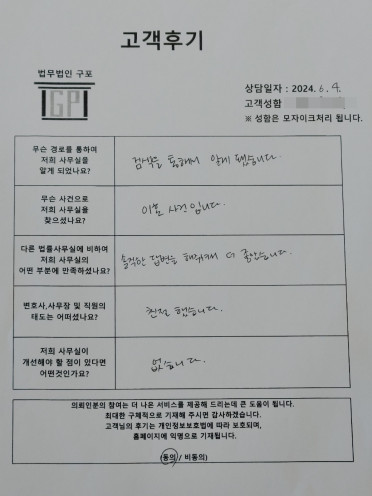 고객후기
법무법인 구포
GP
상담일자 : 2024. 6. 4.
고객성함
※ 성함은 모자이크처리 됩니다.
무슨 경로를 통하여
저희 사무실을
알게 되었나요?
검색을 통해서 알게 됐습니다.
무슨 사건으로
저희 사무실을
찾으셨나요?
이혼 사건입니다.
다른 법률사무실에 비하여
저희 사무실의
어떤 부분에 만족하셨나요?
솔직한 답변을 해줘서 더 좋았습니다.
변호사,사무장 및 직원의
태도는 어떠셨나요?
친절 했습니다.
저희 사무실이
개선해야 할 점이 있다면
어떤것인가요?
없습니다.
의뢰인분의 참여는 더 나은 서비스를 제공해 드리는데 큰 도움이 됩니다.
최대한 구체적으로 기재해 주시면 감사하겠습니다.
고객님의 후기는 개인정보보호법에 따라 보호되며,
홈페이지에 익명으로 기재됩니다.
(동의 / 비동의)